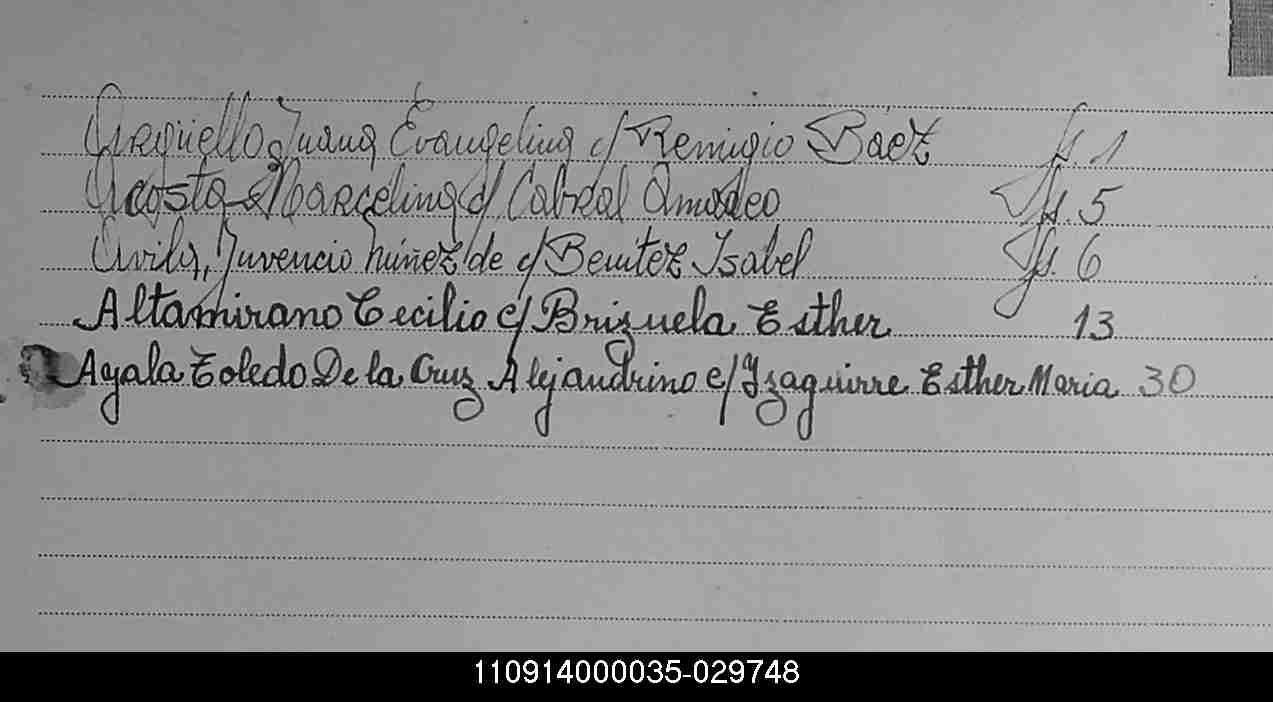 Argüello, Juana Evangelina c/ Remigio Báez fs. 1
Acosta Marcelina c/ Cabral Amadeo fs. 5
Avila, Juvencio Núñez de c/ Benitez Isabel fs. 6
Altamirano Cecilio c/ Brizuela Esther 13
Ayala Toledo De la Cruz Alejandrino c/ Yzaguirre Esther Maria 30
110914000035-029748